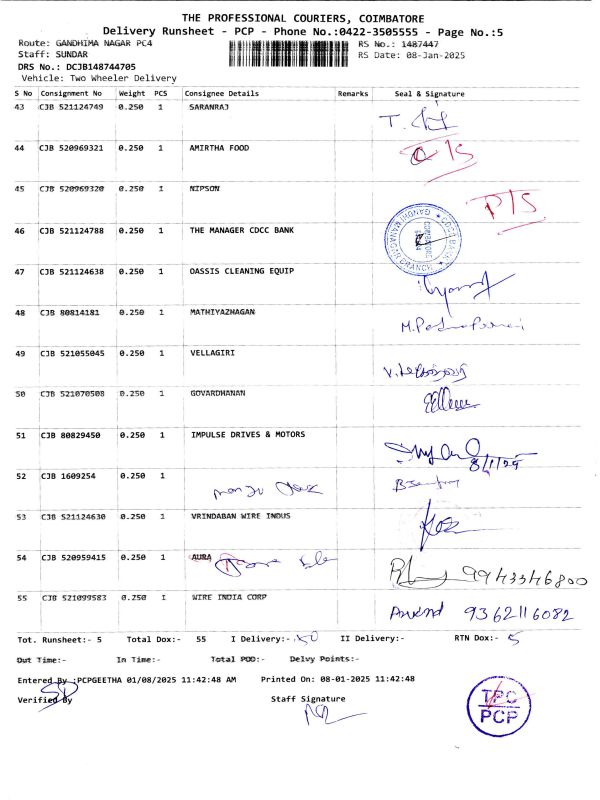 THE PROFESSIONAL COURIERS, COIMBATORE
Delivery Runsheet - PCP - Phone No.:0422-3505555 - Page No.:5
Route: GANDHIMA NAGAR PC4 RS No.: 1487447
Staff: SUNDAR RS Date: 08-Jan-2025
DRS No.: DCJB148744705
Vehicle: Two Wheeler Delivery
S No Consignment No Weight PCS Consignee Details Remarks Seal & Signature
43 CJB 521124749 0.250 1 SARANRAJ
44 CJB 520969321 0.250 1 AMIRTHA FOOD
45 CJB 520969320 0.250 1 NIPSON P/S
46 CJB 521124788 0.250 1 THE MANAGER CDCC BANK
47 CJB 521124638 0.250 1 OASSIS CLEANING EQUIP
48 CJB 80814181 0.250 1 MATHIYAZHAGAN
49 CJB 521055045 0.250 1 VELLAGIRI
50 CJB 521070508 0.250 1 GOVARDHANAN
51 CJB 80829450 0.250 1 IMPULSE DRIVES & MOTORS
8/1/25
52 CJB 1609254 0.250 1
53 CJB 521124630 0.250 1 VRINDABAN WIRE INDUS
54 CJB 520959415 0.250 1 AURA 9943346800
55 CJB 521099583 0.250 1 WIRE INDIA CORP Anand 9362116082
Tot. Runsheet:- 5 Total Dox:- 55 I Delivery:- 50 II Delivery:- RTN Dox:- 5
Out Time:- In Time:- Total POD:- Delvy Points:-
Entered By :PCPGEETHA 01/08/2025 11:42:48 AM Printed On: 08-01-2025 11:42:48
Verified By Staff Signature
TPC
PCP